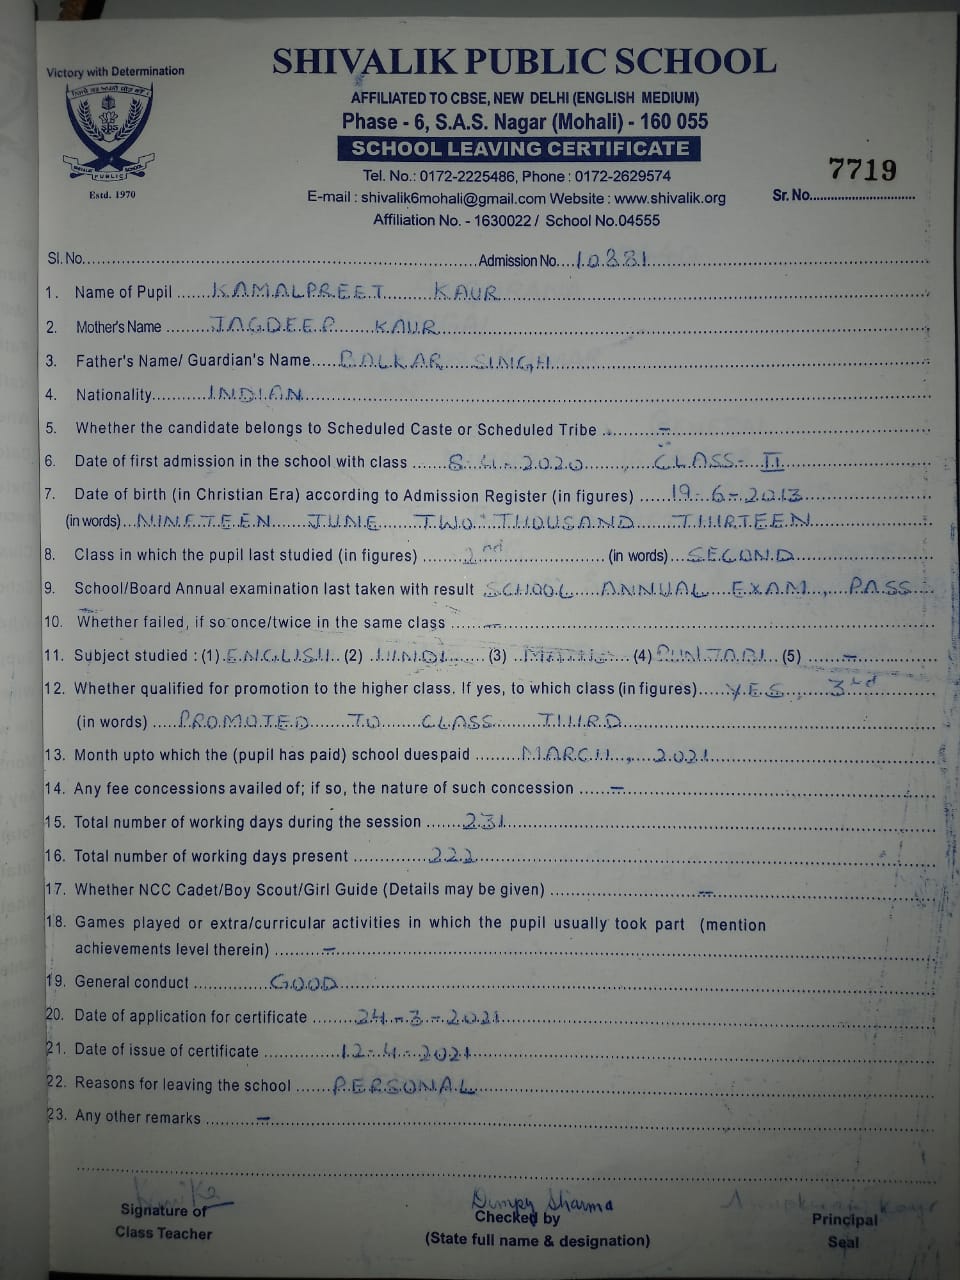 Victory with Determination
SHIVALIK PUBLIC SCHOOL
AFFILIATED TO CBSE, NEW DELHI (ENGLISH MEDIUM)
Phase - 6, S.A.S. Nagar (Mohali) - 160 055
SCHOOL LEAVING CERTIFICATE
Tel. No.: 0172-2225486, Phone : 0172-2629574
E-mail : shivalik6mohali@gmail.com Website : www.shivalik.org
Affiliation No. - 1630022 / School No.04555
SHIVALIK PUBLIC SCHOOL
Estd. 1970
7719
Sr. No.
Sl. No. Admission No. 10881
1. Name of Pupil KAMALPREET KAUR
2. Mother's Name JAGDEEP KAUR
3. Father's Name/ Guardian's Name BALKAR SINGH
4. Nationality INDIAN
5. Whether the candidate belongs to Scheduled Caste or Scheduled Tribe –
6. Date of first admission in the school with class 8-4-2020, CLASS-II
7. Date of birth (in Christian Era) according to Admission Register (in figures) 19-6-2013
(in words) NINETEEN JUNE TWO THOUSAND THIRTEEN
8. Class in which the pupil last studied (in figures) 2nd (in words) SECOND
9. School/Board Annual examination last taken with result SCHOOL ANNUAL EXAM, PASS
10. Whether failed, if so once/twice in the same class –
11. Subject studied : (1) ENGLISH (2) HINDI (3) MATHS (4) PUNJABI (5) –
12. Whether qualified for promotion to the higher class. If yes, to which class (in figures) YES, 3rd
(in words) PROMOTED TO CLASS THIRD
13. Month upto which the (pupil has paid) school duespaid MARCH, 2021
14. Any fee concessions availed of; if so, the nature of such concession –
15. Total number of working days during the session 231
16. Total number of working days present 222
17. Whether NCC Cadet/Boy Scout/Girl Guide (Details may be given) –
18. Games played or extra/curricular activities in which the pupil usually took part (mention
achievements level therein) –
19. General conduct GOOD
20. Date of application for certificate 24-3-2021
21. Date of issue of certificate 12-4-2021
22. Reasons for leaving the school PERSONAL
23. Any other remarks –
Dimpy Sharma
Signature of Checked by Principal
Class Teacher (State full name & designation) Seal